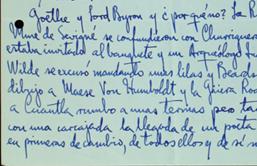 Goethe y Lord Byron y ¿porquéno? La R
Mme de Sevigné se confundieron con Churriguera
estaba invitado al banquete y un Arqueólogo In
Wilde se excusó mandando unas lilas y Beards
dibujo a Maese Von Humboldt y la Güera Ro
a Cuantla rumbo a unas ternias
con una carcajada la llegada de un poeta
en primeras de cambio, de todos ellos y de si m